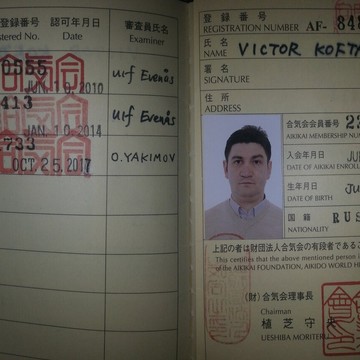 登録番号 認可年月日 審査員氏名
stered No. Date Examiner
0555 JUN 19. 2010 Ulf Evenås
413 JAN 10 2014 Ulf Evenås
733 OCT 25. 2017 O.YAKIMOV
登録番号
REGISTRATION NUMBER AF- 848
氏名
NAME VICTOR KOFTA
署名
SIGNATURE
住所
ADDRESS
合気会会員番号 23
AIKIKAI MEMBERSHIP NUMB
入会年月日 JU
DATE OF AIKIKAI ENROLL
生年月日 JU
DATE OF BIRTH
国籍 RUS
NATIONALITY
上記の者は財団法人合気会の有段者である
This certifies that the above mentioned person i
of the AIKIKAI FOUNDATION, AIKIDO WORLD H
(財)合気会理事長
Chairman
植芝守央
UESHIBA MORITERU